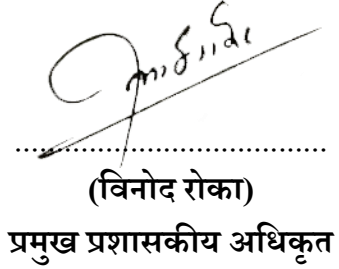 (विनोद रोका)
प्रमुख प्रशासकीय अधिकृत